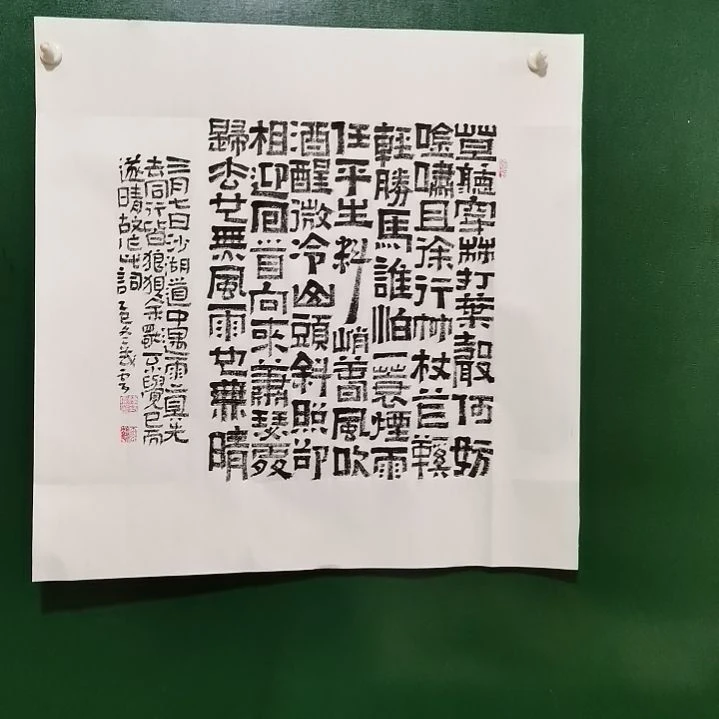 莫聽穿林打葉聲何妨
吟嘯且徐行竹杖芒鞵
輕勝馬誰怕一蓑煙雨
任平生料峭萅風吹
酒醒微冷山頭斜照卻
相迎回首向來蕭瑟處
歸去也無風雨也無晴
三月七日沙湖道中遇雨〻具先
去同行皆狼狽余獨不覺已而
遂晴故作此詞